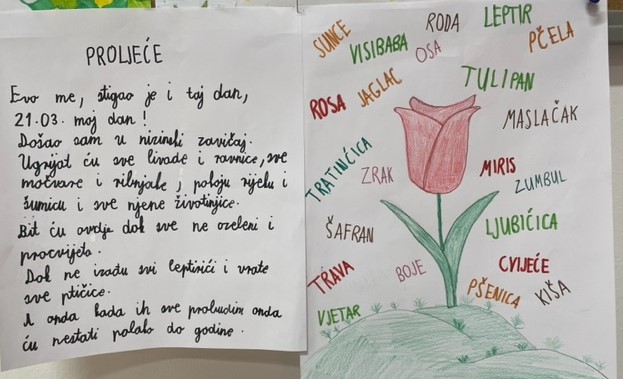 PROLJEĆE
Evo me, stigao je i taj dan,
21.03. moj dan!
Došao sam u nizinski zavičaj.
Ugrijat ću sve livade i ravnice, sve
močvare i ribnjake, poboju rijeku i
šumicu i sve njene životinjice.
Bit ću ovdje dok sve ne ozeleni i
procvijeta.
Dok ne izađu svi leptirići i vrate
sve ptičice.
A onda kada ih sve probudim onda
ću nestati polako do godine.
SUNCE
VISIBABA
RODA
LEPTIR
PČELA
OSA
ROSA
JAGLAC
TULIPAN
MASLAČAK
TRATINČICA
ZRAK
MIRIS
ZUMBUL
ŠAFRAN
LJUBIČICA
TRAVA
BOJE
CVIJEĆE
PŠENICA
KIŠA
VJETAR